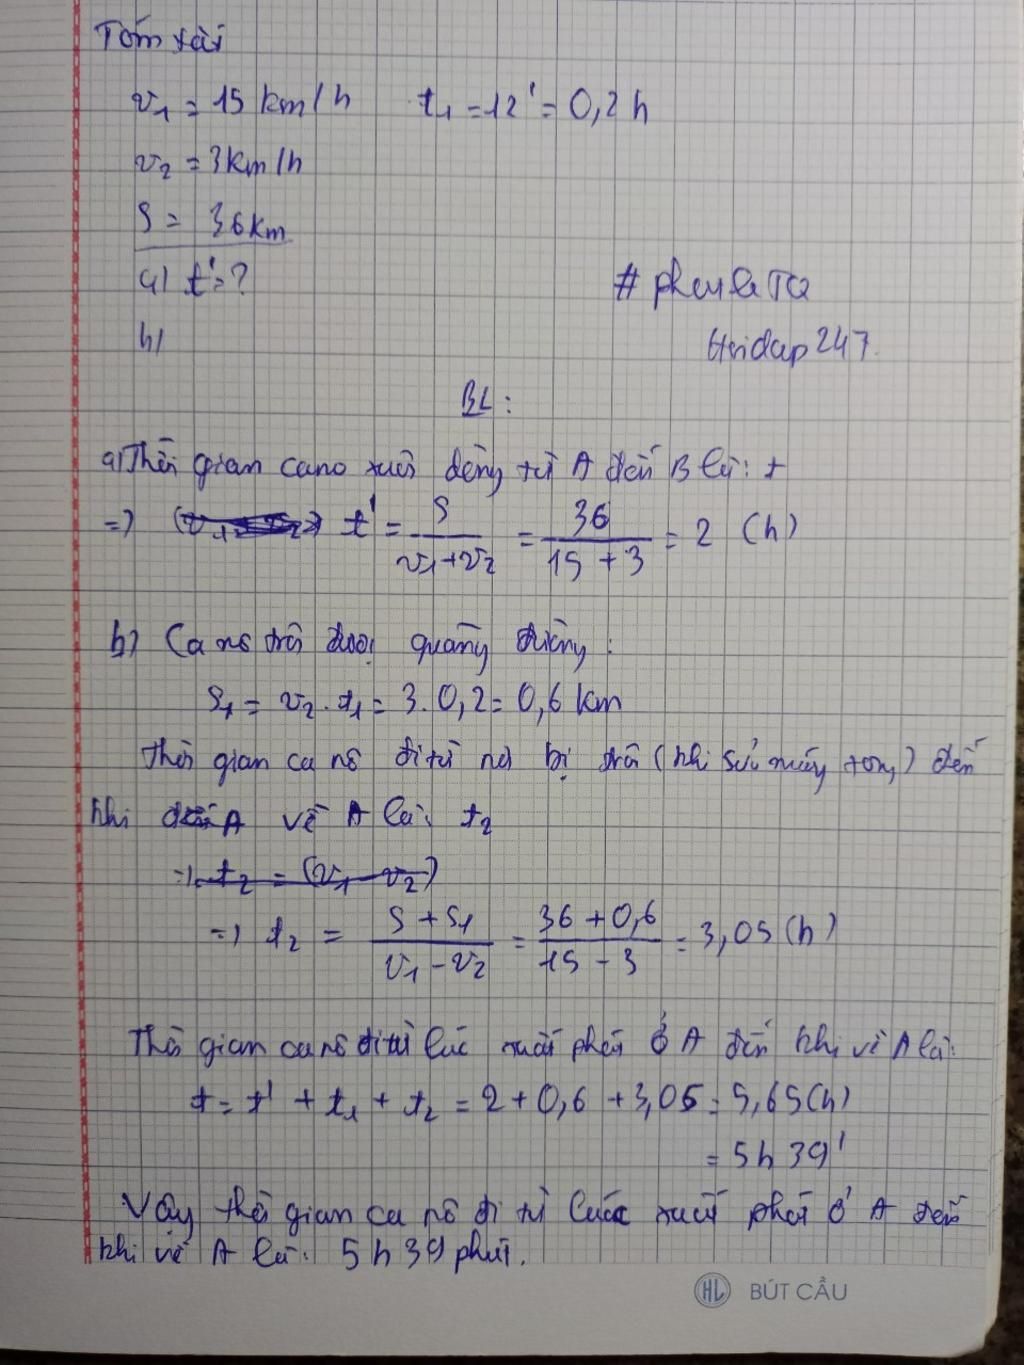 Tóm tắt
v₁ = 15 km/h t₁ = 12' = 0,2 h
v₂ = 3km/h
S = 36km
a) t' = ?
b)
Hoidap247.
BL:
a) Thời gian cano xuôi dòng từ A đến B là: t
=> t' = S / (v₁ + v₂) = 36 / (15 + 3) = 2 (h)
b) Ca nô trôi được quãng đường:
S₁ = v₂ . t₁ = 3 . 0,2 = 0,6 km
Thời gian ca nô đi từ nơi bị trôi (khi sửa máy xong) đến
khi về A là: t₂
=> t₂ = (v₁ - v₂)
=> t₂ = (S + S₁) / (v₁ - v₂) = (36 + 0,6) / (15 - 3) = 3,05 (h)
Thời gian ca nô đi từ lúc xuất phát ở A đến khi về A là:
t = t' + t₁ + t₂ = 2 + 0,6 + 3,05 = 5,65 (h)
= 5h 39'
Vậy thời gian ca nô đi từ lúc xuất phát ở A đến
khi về A là: 5h 39 phút.
HL BÚT CẦU